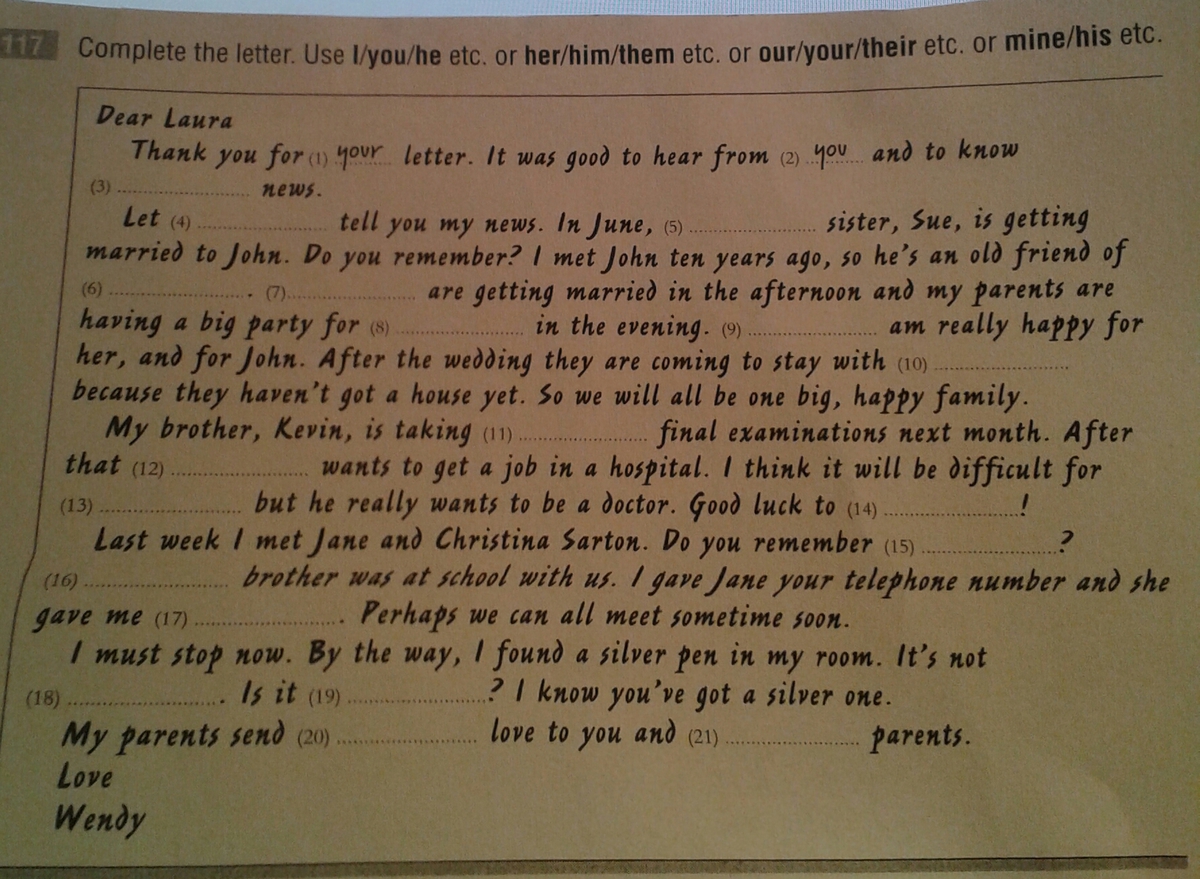 117 Complete the letter. Use I/you/he etc. or her/him/them etc. or our/your/their etc. or mine/his etc.
Dear Laura
Thank you for (1) your letter. It was good to hear from (2) you and to know
(3) .......................... news.
Let (4) .......................... tell you my news. In June, (5) .......................... sister, Sue, is getting
married to John. Do you remember? I met John ten years ago, so he's an old friend of
(6) .......................... . (7) .......................... are getting married in the afternoon and my parents are
having a big party for (8) .......................... in the evening. (9) .......................... am really happy for
her, and for John. After the wedding they are coming to stay with (10) ..........................
because they haven't got a house yet. So we will all be one big, happy family.
My brother, Kevin, is taking (11) .......................... final examinations next month. After
that (12) .......................... wants to get a job in a hospital. I think it will be difficult for
(13) .......................... but he really wants to be a doctor. Good luck to (14) ..........................!
Last week I met Jane and Christina Sarton. Do you remember (15) ..........................?
(16) .......................... brother was at school with us. I gave Jane your telephone number and she
gave me (17) .......................... . Perhaps we can all meet sometime soon.
I must stop now. By the way, I found a silver pen in my room. It's not
(18) .......................... . Is it (19) ..........................? I know you've got a silver one.
My parents send (20) .......................... love to you and (21) .......................... parents.
Love
Wendy